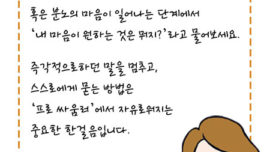 혹은 분노의 마음이 일어나는 단계에서
‘내 마음이 원하는 것은 뭐지?’라고 물어보세요.
즉각적으로하던 말을 멈추고,
스스로에게 묻는 방법은
‘프로 싸움러’에서 자유로워지는
중요한 한걸음입니다.